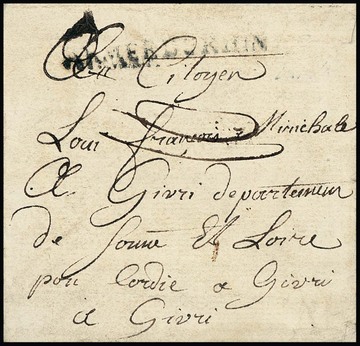 Au Citoyen
Loui françois Minichale
A Givri departemen
de Sonne Et Loire
pou Cordie a Givri
a Givri